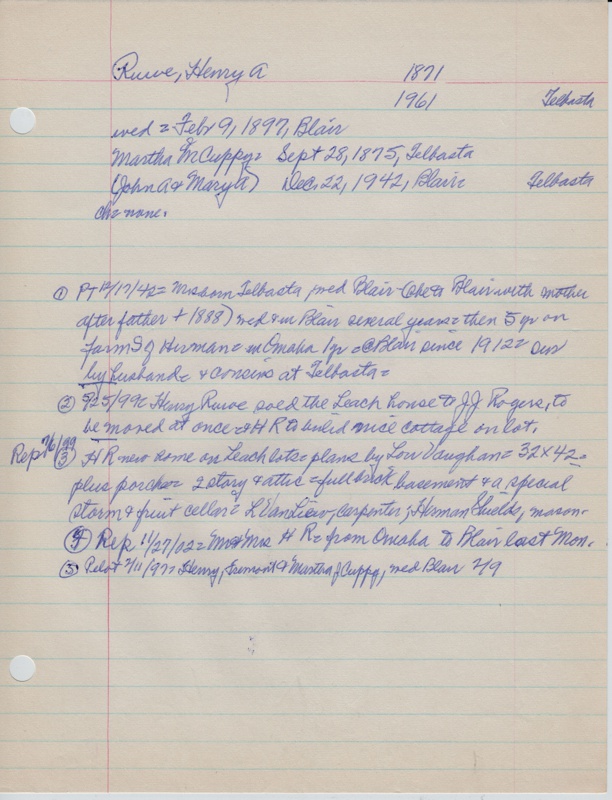 Ruwe, Henry A 1871
1961 Telbasta
wed = Febr 9, 1897, Blair
Martha M Cuppy = Sept 28, 1875, Telbasta
(John A & Mary A) Dec. 22, 1942, Blair = Telbasta
ch = none.
① PT 12/17/42 = Mrs born Telbasta, wed Blair - (he to Blair with mother
after father + 1888) wed & in Blair several years = then 5 yr on
Farm S of Herman = in Omaha 1 yr = @ Blair since 1912 = sur
by husband = & cousins at Telbasta =
② 9/25/99 = Henry Ruwe sold the Leach house to J.J. Rogers, to
be moved at once = H R to build nice cottage on lot.
Rep 7/6/99 ③ H R new home on Leach lots = plans by Lou Vaughan = 32 x 42 =
plus porches = 2 story & attic = full brick basement & a special
storm & fruit cellar = L Van Liew, carpenter; Herman Shields, mason.
④ Rep 11/27/02 = Mr & Mrs H R = from Omaha to Blair last Mon.
⑤ Pilot 2/11/97 = Henry, Fremont & Martha J Cuppy, wed Blair 2/9